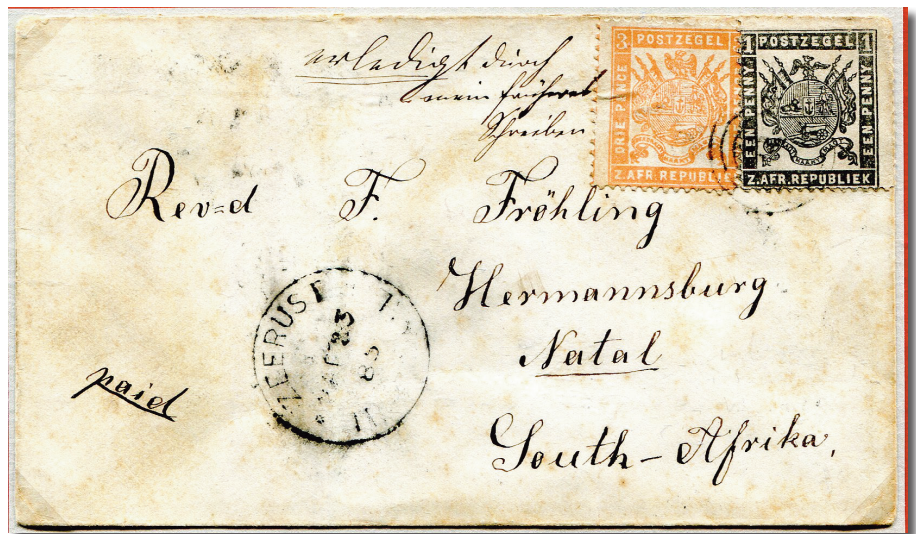 erledigt durch
mein früheres
Schreiben
3 POSTZEGEL
DRIE PENCE
Z.AFR.REPUBLIE
1 POSTZEGEL 1
EEN PENNY
EEN PENNY
Z.AFR.REPUBLIEK
Rev=d F. Fröhling
Hermannsburg
Natal
South-Afrika,
paid
ZEERUST